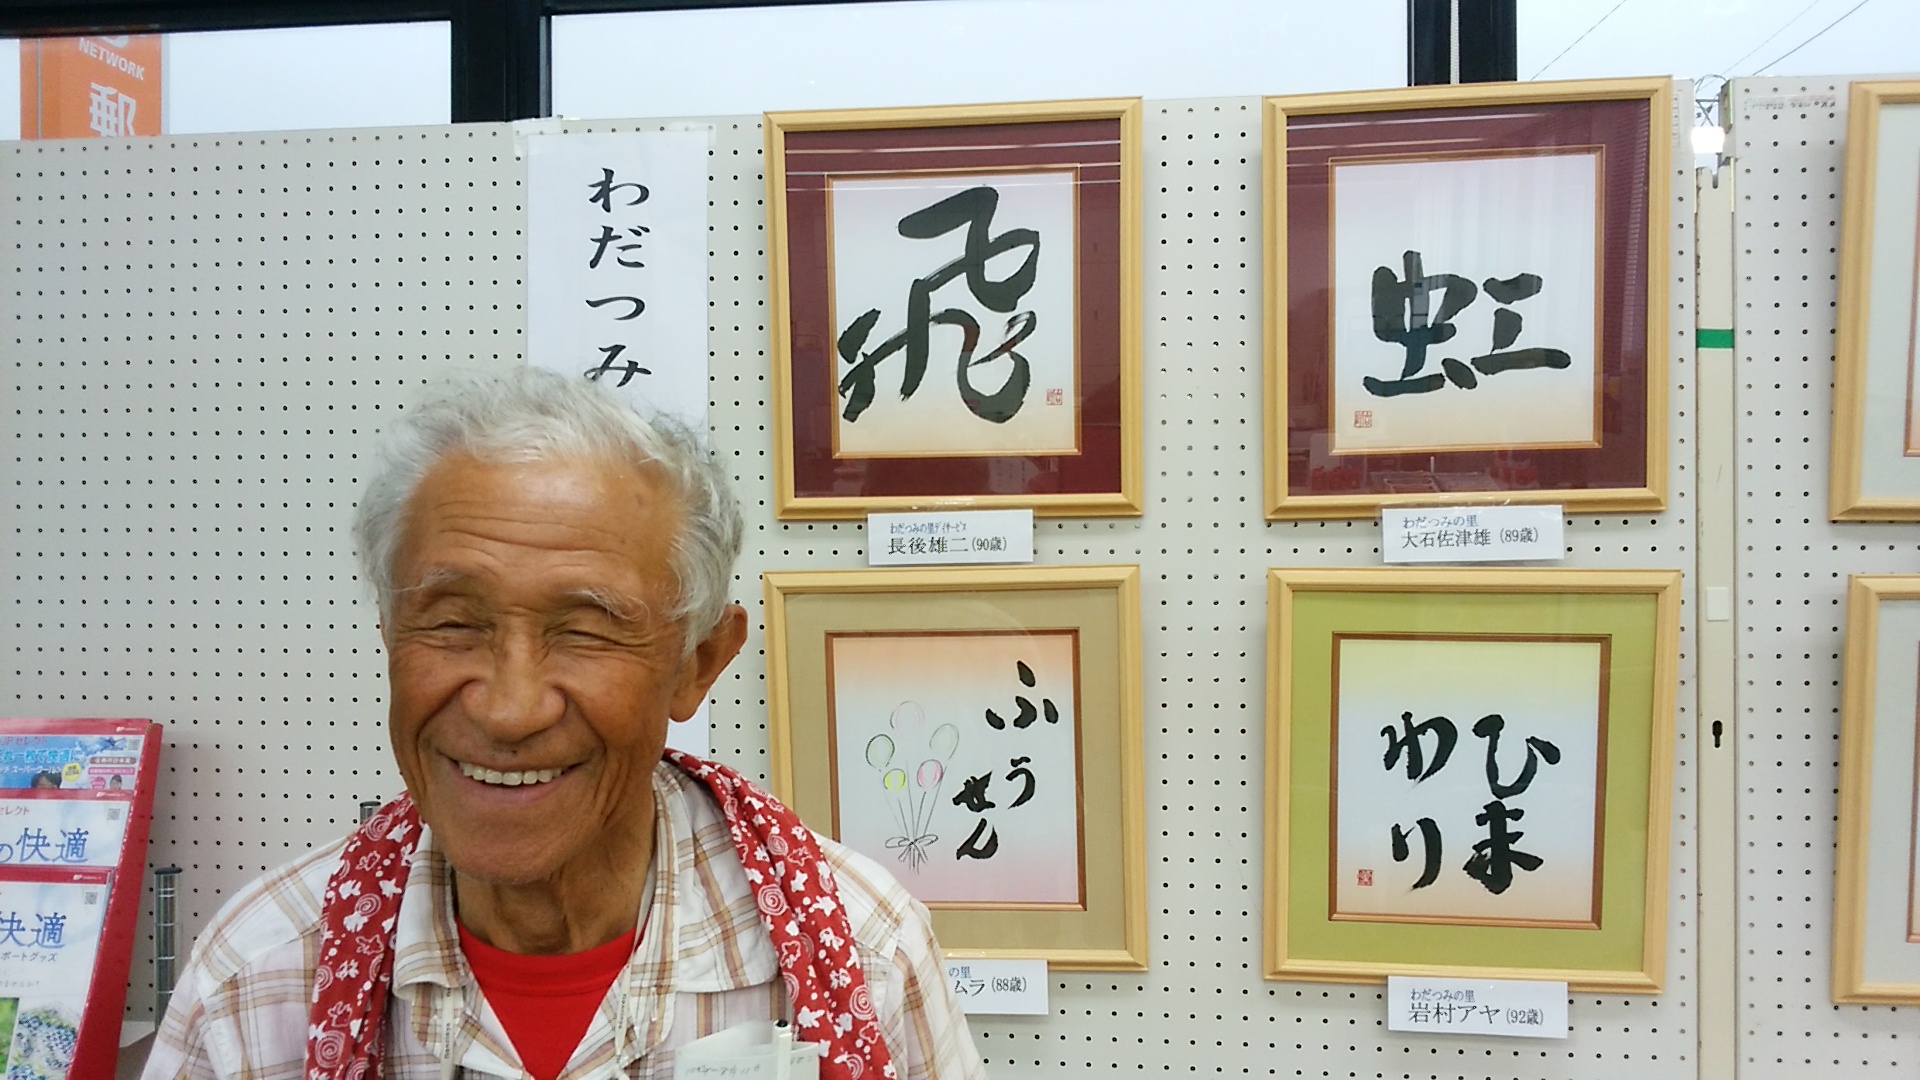 NETWORK
郵
わだつみ
飛
わだつみの里デイサービス
長後雄二(90歳)
虹
わだつみの里
大石佐津雄(89歳)
ふうせん
の里
ムラ(88歳)
ひま
わり
わだつみの里
岩村アヤ(92歳)
セレクト
の快適
快適
ポートグッズ